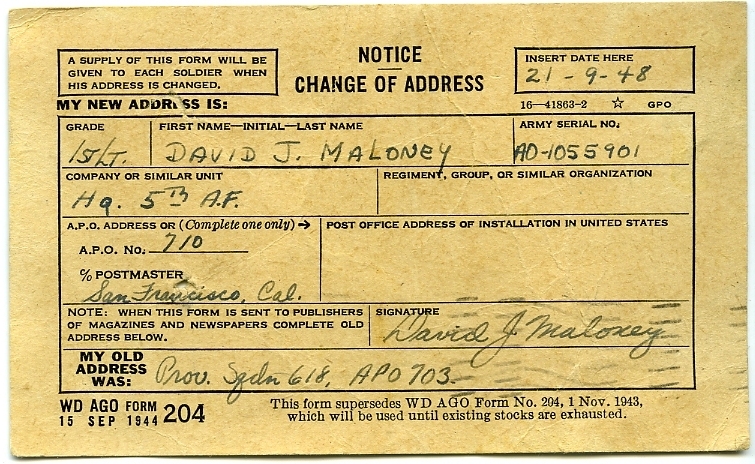 A SUPPLY OF THIS FORM WILL BE
GIVEN TO EACH SOLDIER WHEN
HIS ADDRESS IS CHANGED.
NOTICE
CHANGE OF ADDRESS
INSERT DATE HERE
21-9-48
MY NEW ADDRESS IS:
16—41863-2 ☆ GPO
GRADE
1st/LT.
FIRST NAME—INITIAL—LAST NAME
DAVID J. MALONEY
ARMY SERIAL NO.
AO-1055901
COMPANY OR SIMILAR UNIT
Hq. 5TH A.F.
REGIMENT, GROUP, OR SIMILAR ORGANIZATION
A.P.O. ADDRESS OR (Complete one only) →
A.P.O. No. 710
POST OFFICE ADDRESS OF INSTALLATION IN UNITED STATES
% POSTMASTER
San Francisco, Cal.
NOTE: WHEN THIS FORM IS SENT TO PUBLISHERS
OF MAGAZINES AND NEWSPAPERS COMPLETE OLD
ADDRESS BELOW.
SIGNATURE
David J Maloney
MY OLD
ADDRESS
WAS:
Prov. Sqdn 618, APO 703.
WD AGO FORM 204
15 SEP 1944
This form supersedes WD AGO Form No. 204, 1 Nov. 1943,
which will be used until existing stocks are exhausted.